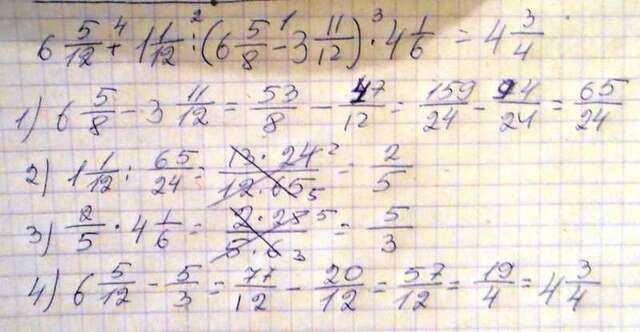 6 5/12 + 1 1/12 : (6 5/8 - 3 11/12) · 4 1/6 = 4 3/4
1) 6 5/8 - 3 11/12 = 53/8 - 47/12 = 159/24 - 94/24 = 65/24
2) 1 1/12 : 65/24 = 13·24 2/12·65 5 = 2/5
3) 2/5 · 4 1/6 = 2·25 5/5·6 3 = 5/3
4) 6 5/12 - 5/3 = 77/12 - 20/12 = 57/12 = 19/4 = 4 3/4